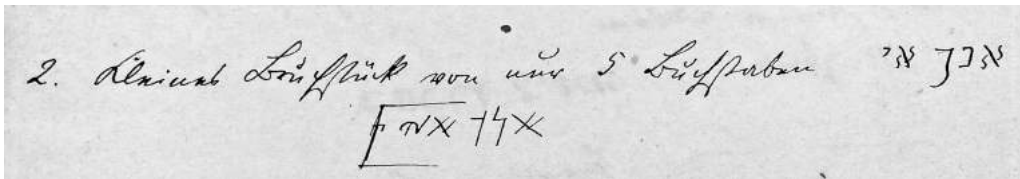 2. Kleines Bruchstück von nur 5 Buchstaben אנך אי